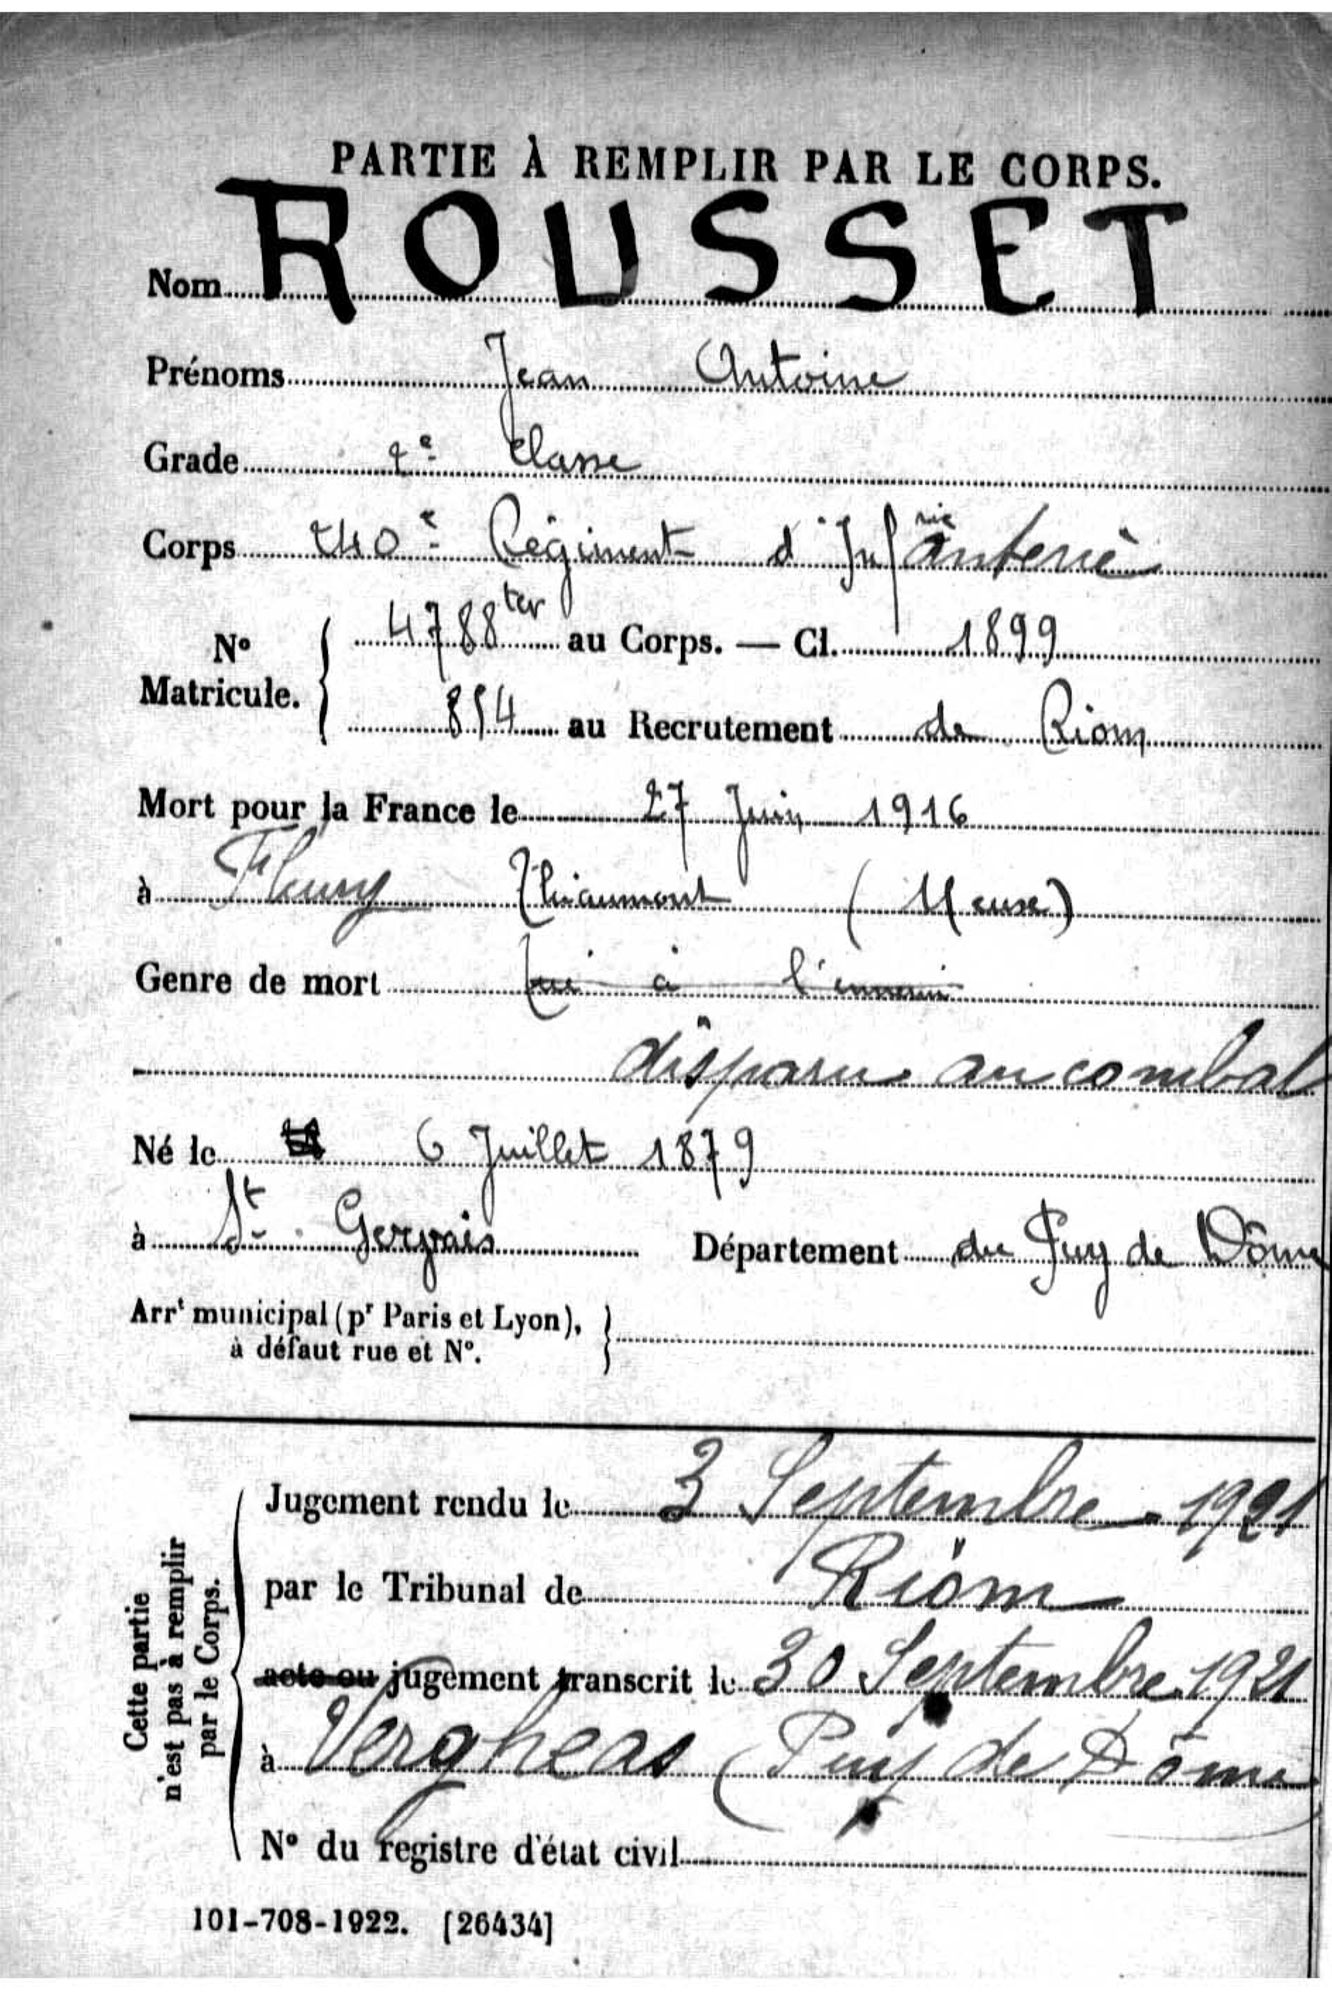 PARTIE À REMPLIR PAR LE CORPS.
Nom ROUSSET
Prénoms Jean Antoine
Grade 2e Classe
Corps 240e Régiment d'Infanterie
No Matricule. 4788 ter au Corps. — Cl. 1899
854 au Recrutement de Riom
Mort pour la France le 27 Juin 1916
à Fleury Thiaumont (Meuse)
Genre de mort Tué à l'ennemi
disparu au combat
Né le 6 Juillet 1879
à St Gervais Département du Puy de Dôme
Arrt municipal (pr Paris et Lyon),
à défaut rue et No.
Cette partie
n'est pas à remplir
par le Corps.
Jugement rendu le 3 Septembre 1921
par le Tribunal de Riom
acte ou jugement transcrit le 30 Septembre 1921
à Vergheas (Puy de Dôme
No du registre d'état civil
101-708-1922. [26434]